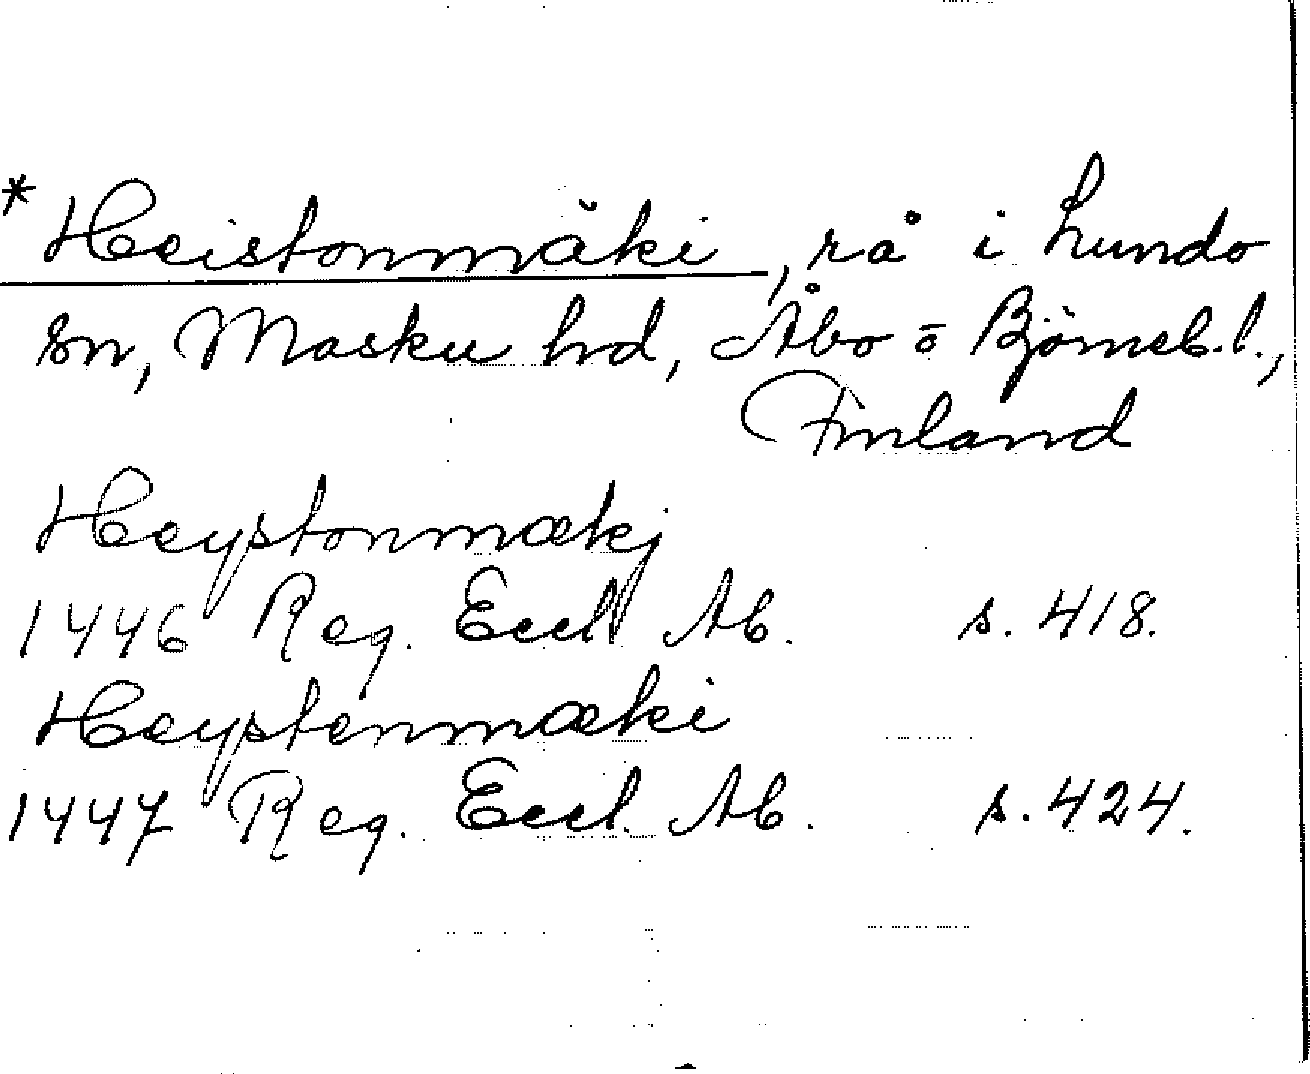 *Heistonmäki, rå i Lundo
sn, Masku hd, Åbo o Björneb. l.,
Finland
Heystonmækj
1446 Reg. Eccl. Ab. s. 418.
Heystenmæki
1447 Reg. Eccl. Ab. s. 424.